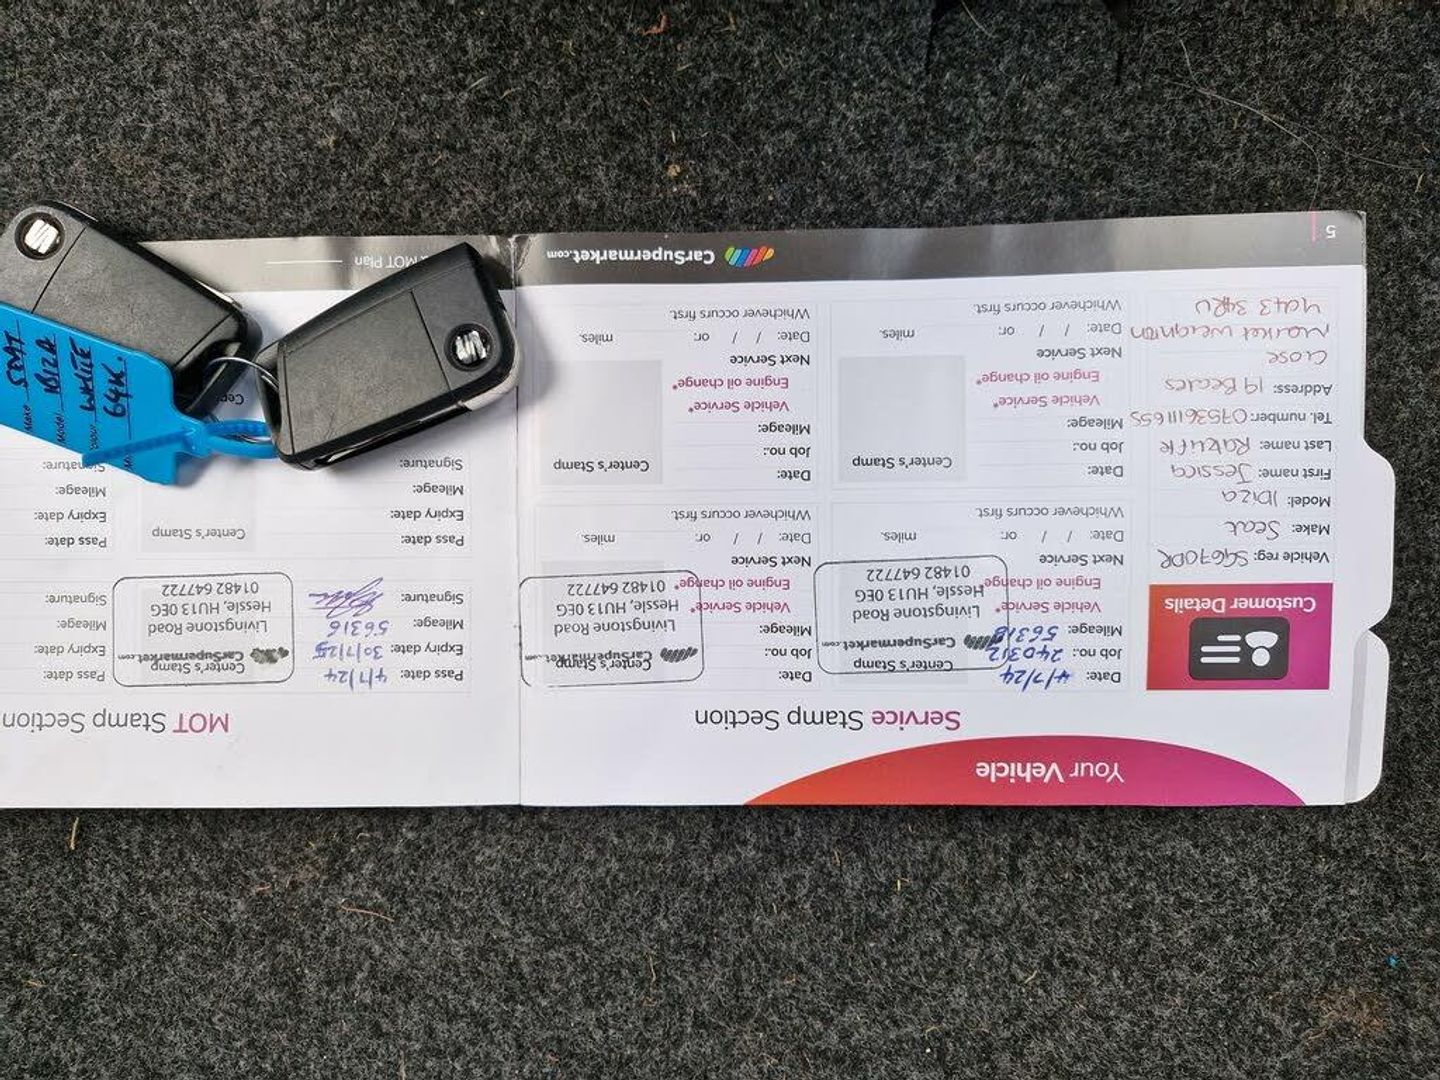 Your Vehicle
Customer Details
Vehicle reg: SG67ODR
Make: Seat
Model: IBIZA
First name: Jessica
Last name: Ratcliffe
Tel. number: 07536111655
Address: 19 Beales
Close
Market Weighton
YO43 3QRU
5
Service Stamp Section
Date: 4/7/24
Job no.: 240312
Mileage: 56318
Vehicle Service*
Engine oil change*
Next Service
Date: / / or: miles.
Whichever occurs first.
Center's Stamp
CarSupermarket.com
Livingstone Road
Hessle, HU13 0EG
01482 647722
Date:
Job no.:
Mileage:
Vehicle Service*
Engine oil change*
Next Service
Date: / / or: miles.
Whichever occurs first.
Center's Stamp
CarSupermarket.com
Livingstone Road
Hessle, HU13 0EG
01482 647722
Date:
Job no.:
Mileage:
Vehicle Service*
Engine oil change*
Next Service
Date: / / or: miles.
Whichever occurs first.
Center's Stamp
Date:
Job no.:
Mileage:
Vehicle Service*
Engine oil change*
Next Service
Date: / / or: miles.
Whichever occurs first.
Center's Stamp
CarSupermarket.com
MOT Stamp Section
Pass date: 4/7/24
Expiry date: 30/7/25
Mileage: 56316
Signature:
Center's Stamp
CarSupermarket.com
Livingstone Road
Hessle, HU13 0EG
01482 647722
Pass date:
Expiry date:
Mileage:
Signature:
Pass date:
Expiry date:
Mileage:
Signature:
Center's Stamp
Pass date:
Expiry date:
Mileage:
Signature:
MOT Plan
Make SEAT
Model IBIZA
Colour WHITE
64K.